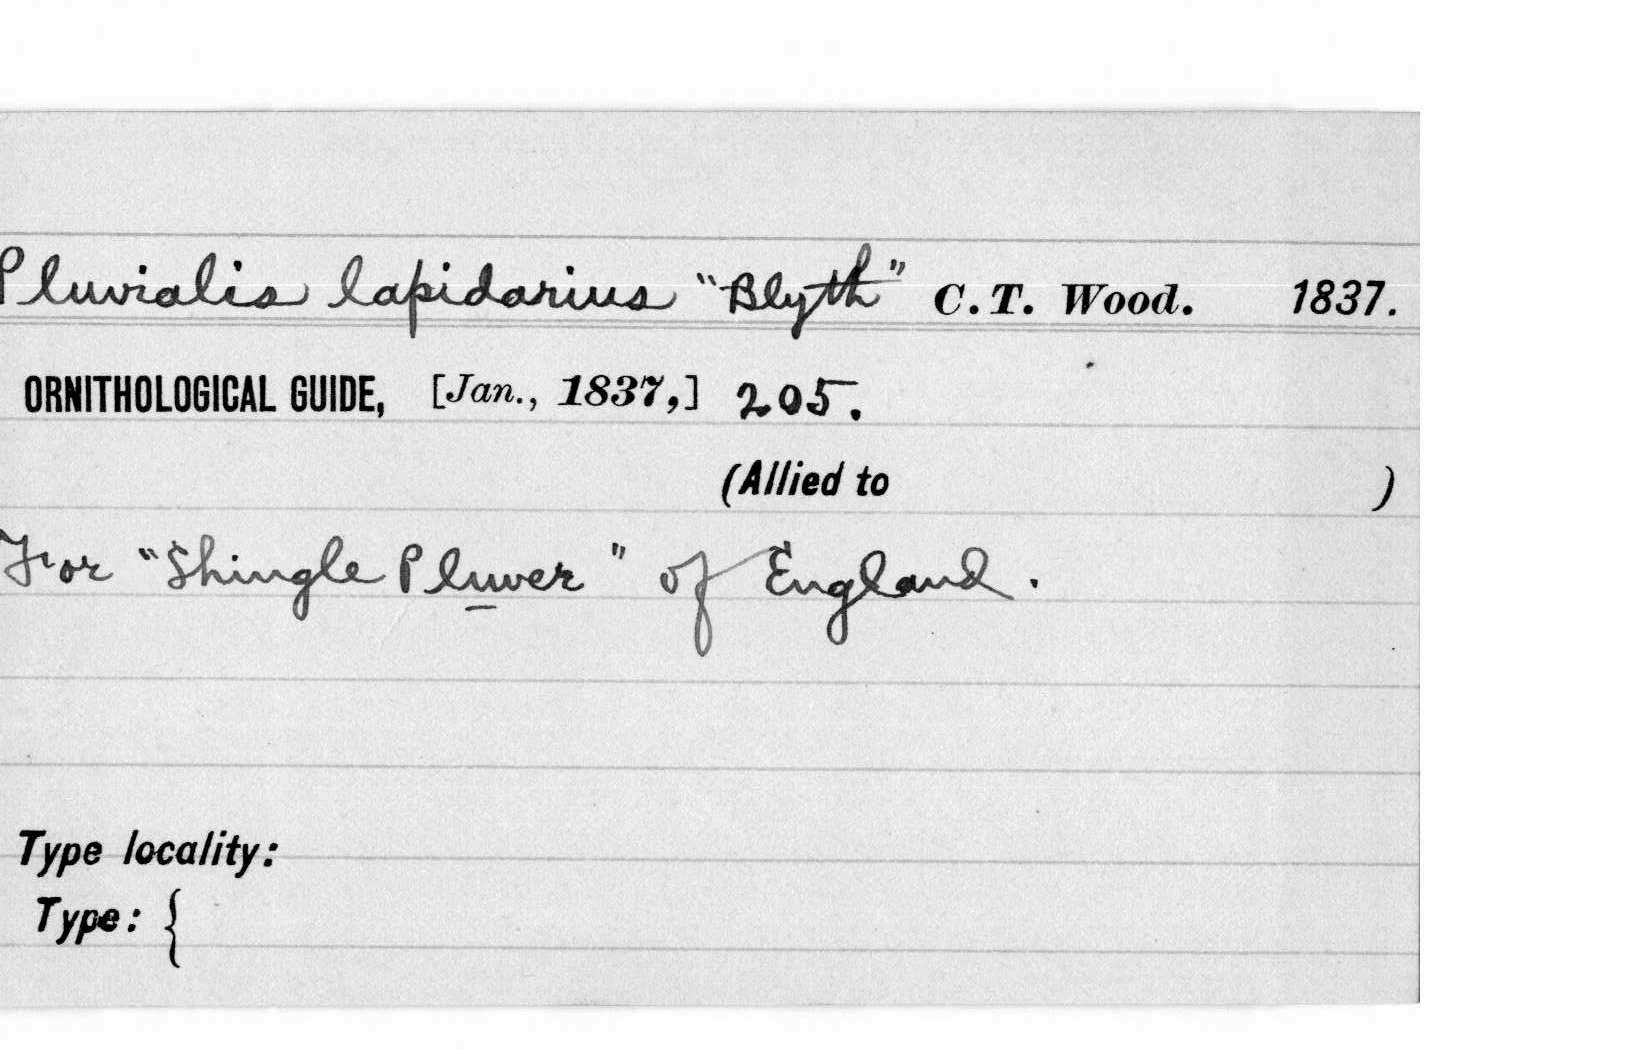 Pluvialis lapidarius "Blyth" C. T. Wood. 1837.
ORNITHOLOGICAL GUIDE, [Jan., 1837,] 205.
(Allied to )
For "Shingle Pluver" of England.
Type locality:
Type: {